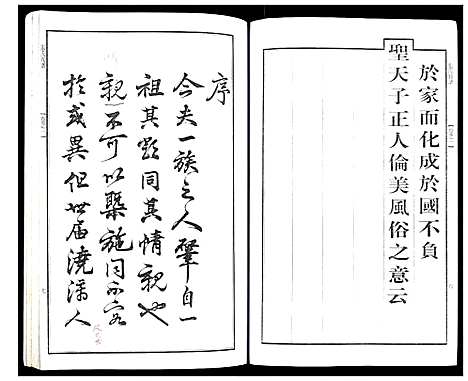 於家而化成於國不負
聖天子正人倫美風俗之意云
序
今夫一族之人肇自一
祖其類同其情親也
親不可以槩施同不容
於或異但世届澆漓人